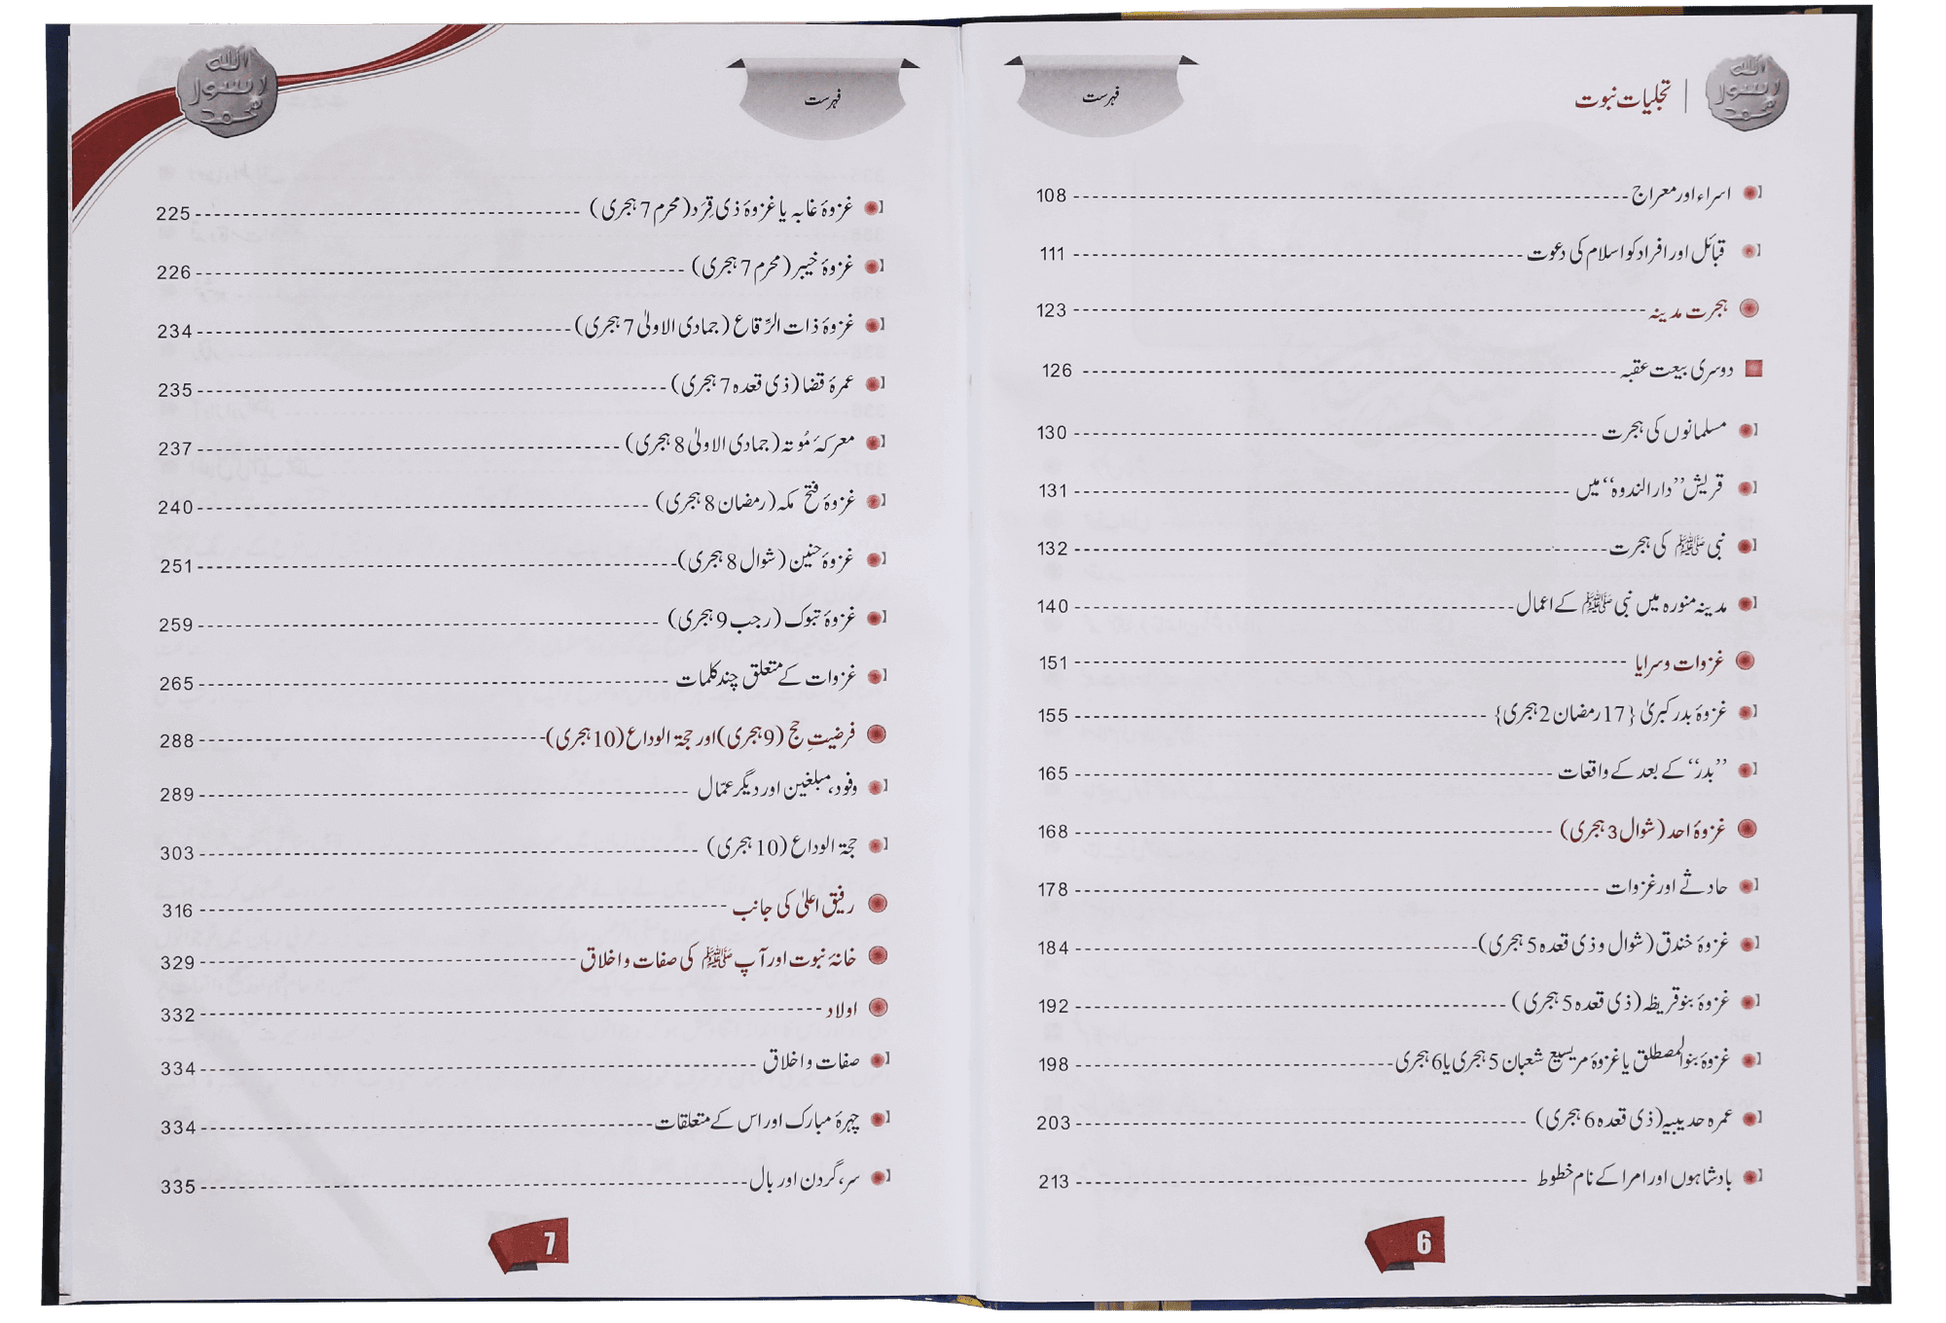 اللہ
رسول
محمد
تجلیات نبوت
فہرست
اسراء اور معراج 108
قبائل اور افراد کو اسلام کی دعوت 111
ہجرت مدینہ 123
دوسری بیعت عقبہ 126
مسلمانوں کی ہجرت 130
قریش ”دار الندوہ“ میں 131
نبی ﷺ کی ہجرت 132
مدینہ منورہ میں نبی ﷺ کے اعمال 140
غزوات و سرایا 151
غزوۂ بدر کبریٰ {17 رمضان 2 ہجری} 155
”بدر“ کے بعد کے واقعات 165
غزوۂ احد (شوال 3 ہجری) 168
حادثے اور غزوات 178
غزوۂ خندق (شوال و ذی قعدہ 5 ہجری) 184
غزوۂ بنو قریظہ (ذی قعدہ 5 ہجری) 192
غزوۂ بنو المصطلق یا غزوۂ مریسیع شعبان 5 ہجری یا 6 ہجری 198
عمرہ حدیبیہ (ذی قعدہ 6 ہجری) 203
بادشاہوں اور امرا کے نام خطوط 213
6
اللہ
رسول
محمد
فہرست
غزوۂ غابہ یا غزوۂ ذی قِرَد (محرم 7 ہجری) 225
غزوۂ خیبر (محرم 7 ہجری) 226
غزوۂ ذات الرِّقاع (جمادی الاولیٰ 7 ہجری) 234
عمرۂ قضا (ذی قعدہ 7 ہجری) 235
معرکۂ مُوتہ (جمادی الاولیٰ 8 ہجری) 237
غزوۂ فتح مکہ (رمضان 8 ہجری) 240
غزوۂ حنین (شوال 8 ہجری) 251
غزوۂ تبوک (رجب 9 ہجری) 259
غزوات کے متعلق چند کلمات 265
فرضیتِ حج (9 ہجری) اور حجۃ الوداع (10 ہجری) 288
وفود، مبلغین اور دیگر عمّال 289
حجۃ الوداع (10 ہجری) 303
رفیق اعلیٰ کی جانب 316
خانۂ نبوت اور آپ ﷺ کی صفات و اخلاق 329
اولاد 332
صفات و اخلاق 334
چہرۂ مبارک اور اس کے متعلقات 334
سر، گردن اور بال 335
7